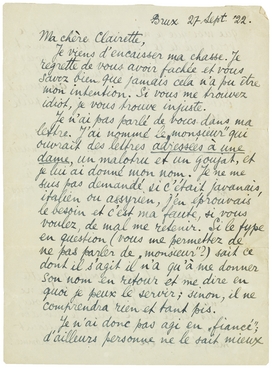 Brux 27 Sept '22.
Ma chère Clairette,
Je viens d'encaisser ma chasse. Je
regrette de vous avoir fachée et vous
savez bien que jamais cela n'a pu être
mon intention. Si vous me trouvez
idiot, je vous trouve injuste.
Je n'ai pas parlé de vous dans ma
lettre. J'ai nommé le monsieur qui
ouvrait des lettres adressées à une
dame, un malotru et un goujat, et
je lui ai donné mon nom. Je ne me
suis pas demandé si c'était javanais,
italien ou assyrien; j'en éprouvais
le besoin et c'est ma faute, si vous
voulez, de mal me retenir. Si le type
en question (vous me permettez de
ne pas parler de „monsieur"?) sait ce
dont il s'agit il n'a qu'à me donner
son nom en retour et me dire en
quoi je peux le servir; sinon, il ne
comprendra rien et tant pis.
Je n'ai donc pas agi en „fiancé";
d'ailleurs personne ne le sait mieux